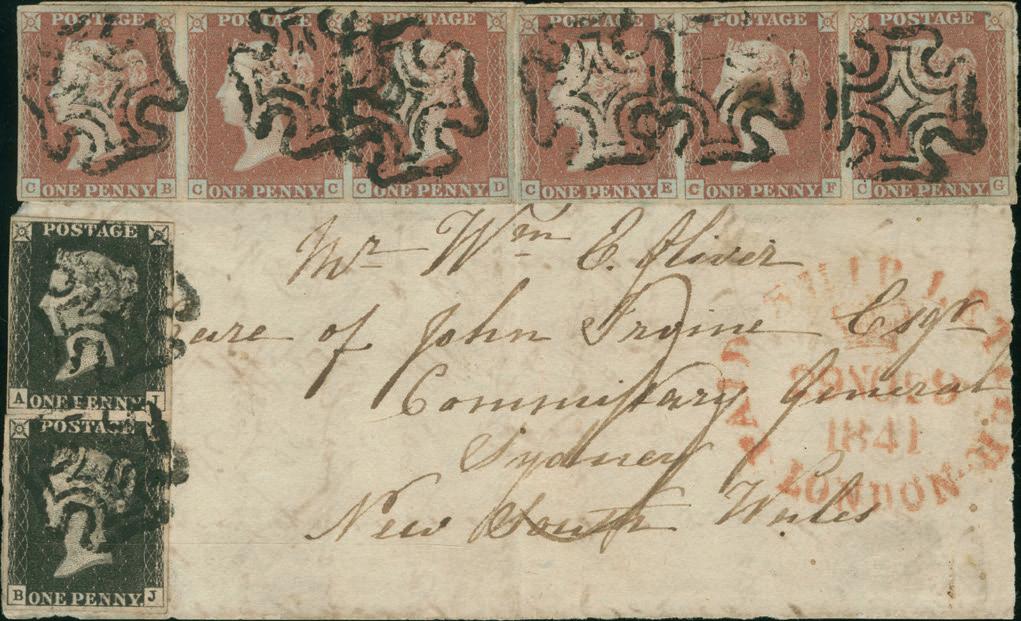 POSTAGE POSTAGE POSTAGE POSTAGE POSTAGE POSTAGE
C ONE PENNY B C ONE PENNY C C ONE PENNY D C ONE PENNY E C ONE PENNY F C ONE PENNY G
POSTAGE
A ONE PENNY. J
POSTAGE
B ONE PENNY. J
Mr Wm E. Oliver
Care of John Irvine Esqr
Commissary General
Sydney
New South Wales
PAID SHIP LETTER
29NO29
1841
LONDON